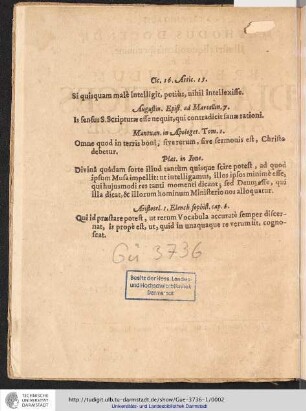 Cic. 16. Attic. 15.
Si quisquam malè Intelligit, potius, nihil Intellexisse.
Augustin. Epist. ad Marcellin. 7.
Is sensus S. Scripturæ esse nequit, qui contradicit sanæ rationi.
Mantuan. in Apologet. Tom. 1.
Omne quod in terris bont, sive rerum, sive sermonis est, Christo
debetur.
Plat. in Ione.
Divinâ quâdam sorte illud tantum quisque scire potest, ad quod
ipsum Musa impellit: ut intelligamus, illos ipsos minimè esse,
qui hujusmodi res tanti momenti dicant, sed Deum esse, qui
illa dicat, & illorum hominum Ministerio nos alloquatur.
Aristotel. 1. Elench sophist. cap. 1.
Qui id præstare potest, ut rerum Vocabula accuratè semper discer-
nat, Is propè est, ut, quid in unaquaque re verum sit, cognos-
cat.
Gü 3736
Besitz der Hess. Landes-
und Hochschulbibliothek
Darmstadt
TECHNISCHE
UNIVERSITÄT
DARMSTADT
http://tudigit.ulb.tu-darmstadt.de/show/Gue-3736-1/0002
Universitäts- und Landesbibliothek Darmstadt